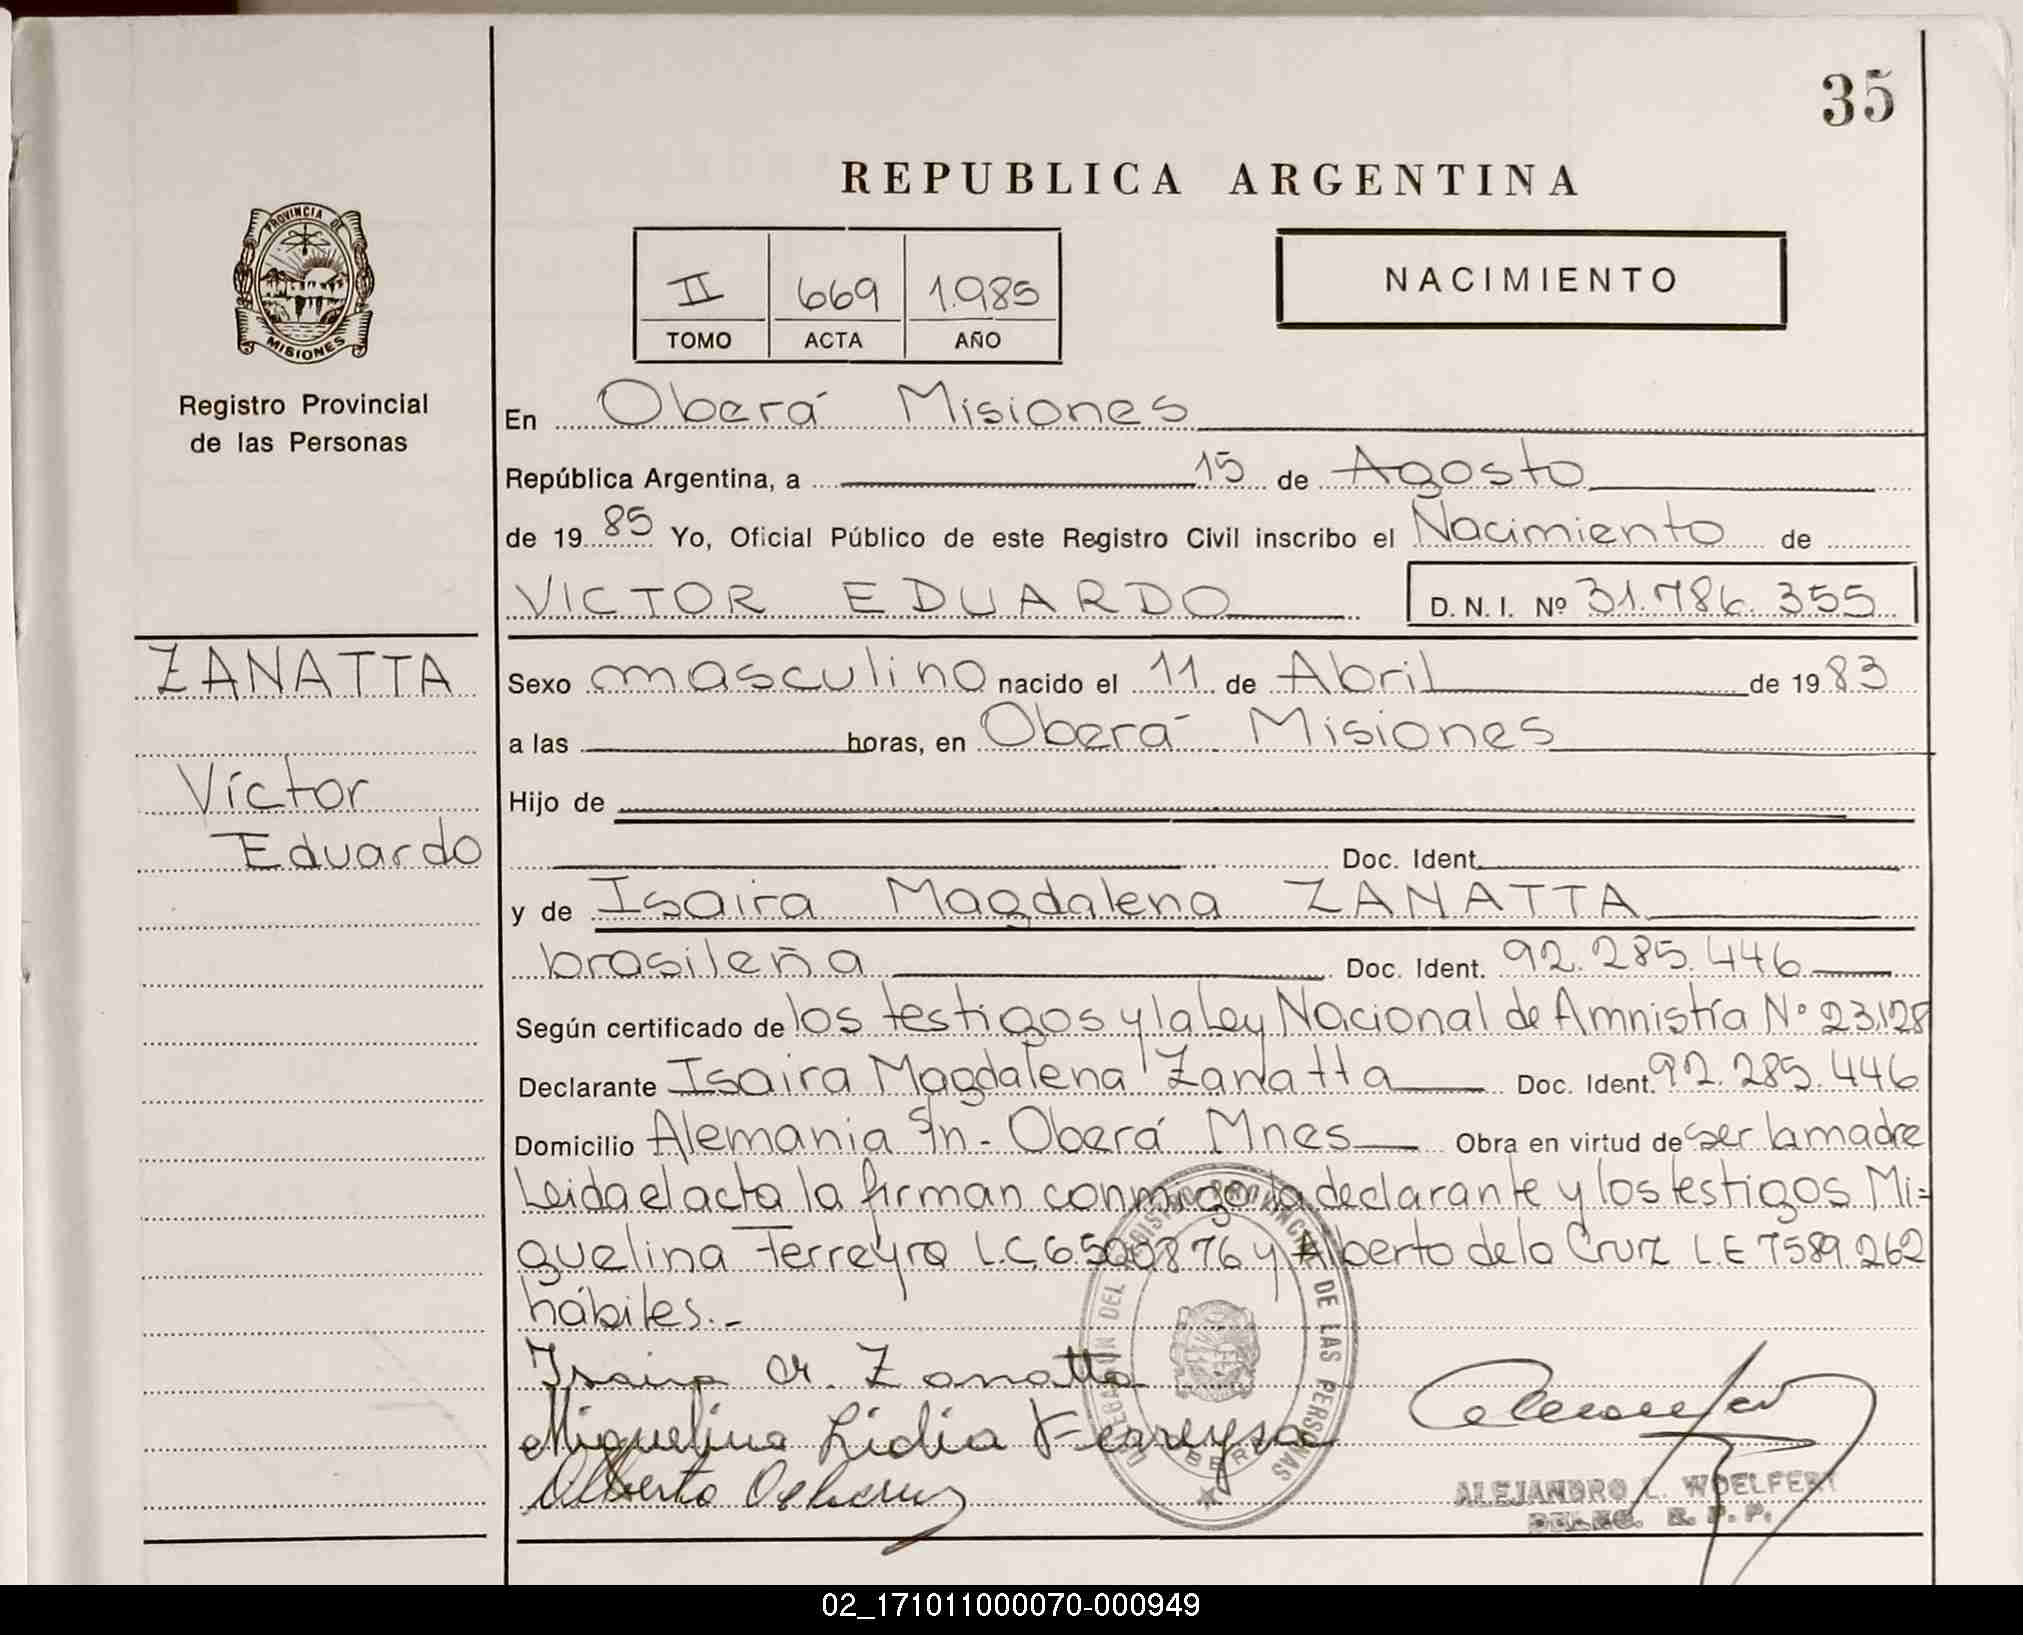 35
REPUBLICA ARGENTINA
PROVINCIA DE
MISIONES
Registro Provincial
de las Personas
II 669 1.985
TOMO ACTA AÑO
NACIMIENTO
En Oberá Misiones
República Argentina, a 15 de Agosto
de 19 85 Yo, Oficial Público de este Registro Civil inscribo el Nacimiento de
VICTOR EDUARDO D. N. I. Nº 31.786.355
ZANATTA
Víctor
Eduardo
Sexo masculino nacido el 11 de Abril de 19 83
a las horas, en Oberá Misiones
Hijo de
Doc. Ident.
y de Isaira Magdalena ZANATTA
brasileña Doc. Ident. 92.285.446
Según certificado de los testigos y la Ley Nacional de Amnistía Nº 23.128
Declarante Isaira Magdalena Zanatta Doc. Ident. 92.285.446
Domicilio Alemania S/n - Oberá Mnes Obra en virtud de ser la madre
Leida el acta la firman conmigo la declarante y los testigos Mi=
guelina Ferreyra L.C. 6.500876 y Alberto de la Cruz L.E 7589.262
hábiles.-
Isaira M. Zanatta
Miguelina Lidia Ferreyra
Alberto Delacruz
DEL REGISTRO PROVINCIAL DE LAS PERSONAS
ALEJANDRO L. WOELFERT
DELEG. R. P. P.
02_171011000070-000949